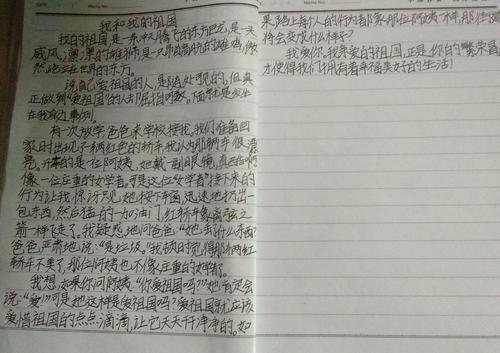 我和我的祖国
我的祖国是一条腾飞的东方巨龙,是一头
威风凛凛的雄狮,是只昂首高歌的雄鸡,傲
然屹立在世界的东方。
说自己爱祖国的人,是随处可见的,但真
正做到“爱祖国”的人却屈指可数。下面就是发生
在我身边事例。
有一次放学爸爸来学校接我。我们准备回
家时出现了一辆红色的轿车,我认为那辆车很漂
亮。开车的是一位阿姨,她戴一副眼镜,真
像一位庄重的女学者。可是这位“女学者”接下来的
行为让我惊讶,只见她按下车窗,迅速地扔出一
包东西,然后猛的一加油门,红轿车象离弦之
箭一样飞走了。我疑惑地问爸爸:“她丢了什么东西?”
爸爸严肃地说:“是垃圾。”我顿时觉得那辆红
轿车不美了,那位阿姨也不像庄重的女学者了。
我想,如果你问阿姨:“你爱祖国吗?”她肯定会
说:“爱!”可是她这样是爱祖国吗?爱祖国就应该
爱惜祖国的点点滴滴,让它天天干干净净的。如
果路上每个人的行为都象那位阿姨一样,那
将会变成什么样子?
我爱你,我亲爱的祖国,正是你的繁荣昌
才使得我们拥有着幸福美好的生活!